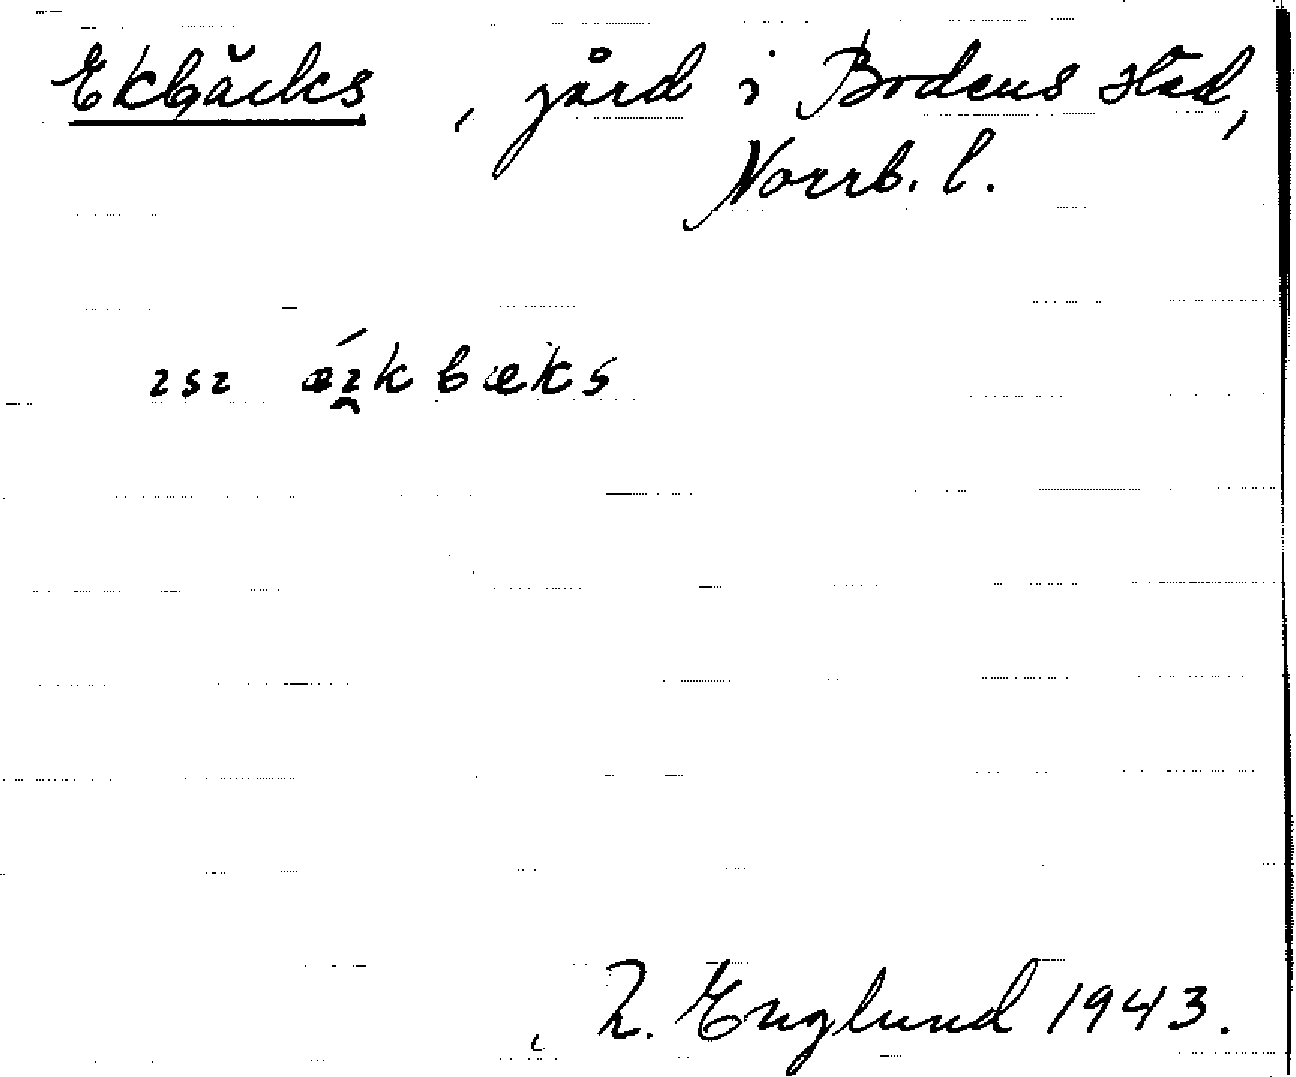 Ekbäcks, gård i Bodens stad,
Norrb. l.
ısı æı̯́kbæks
Z. Englund 1943.